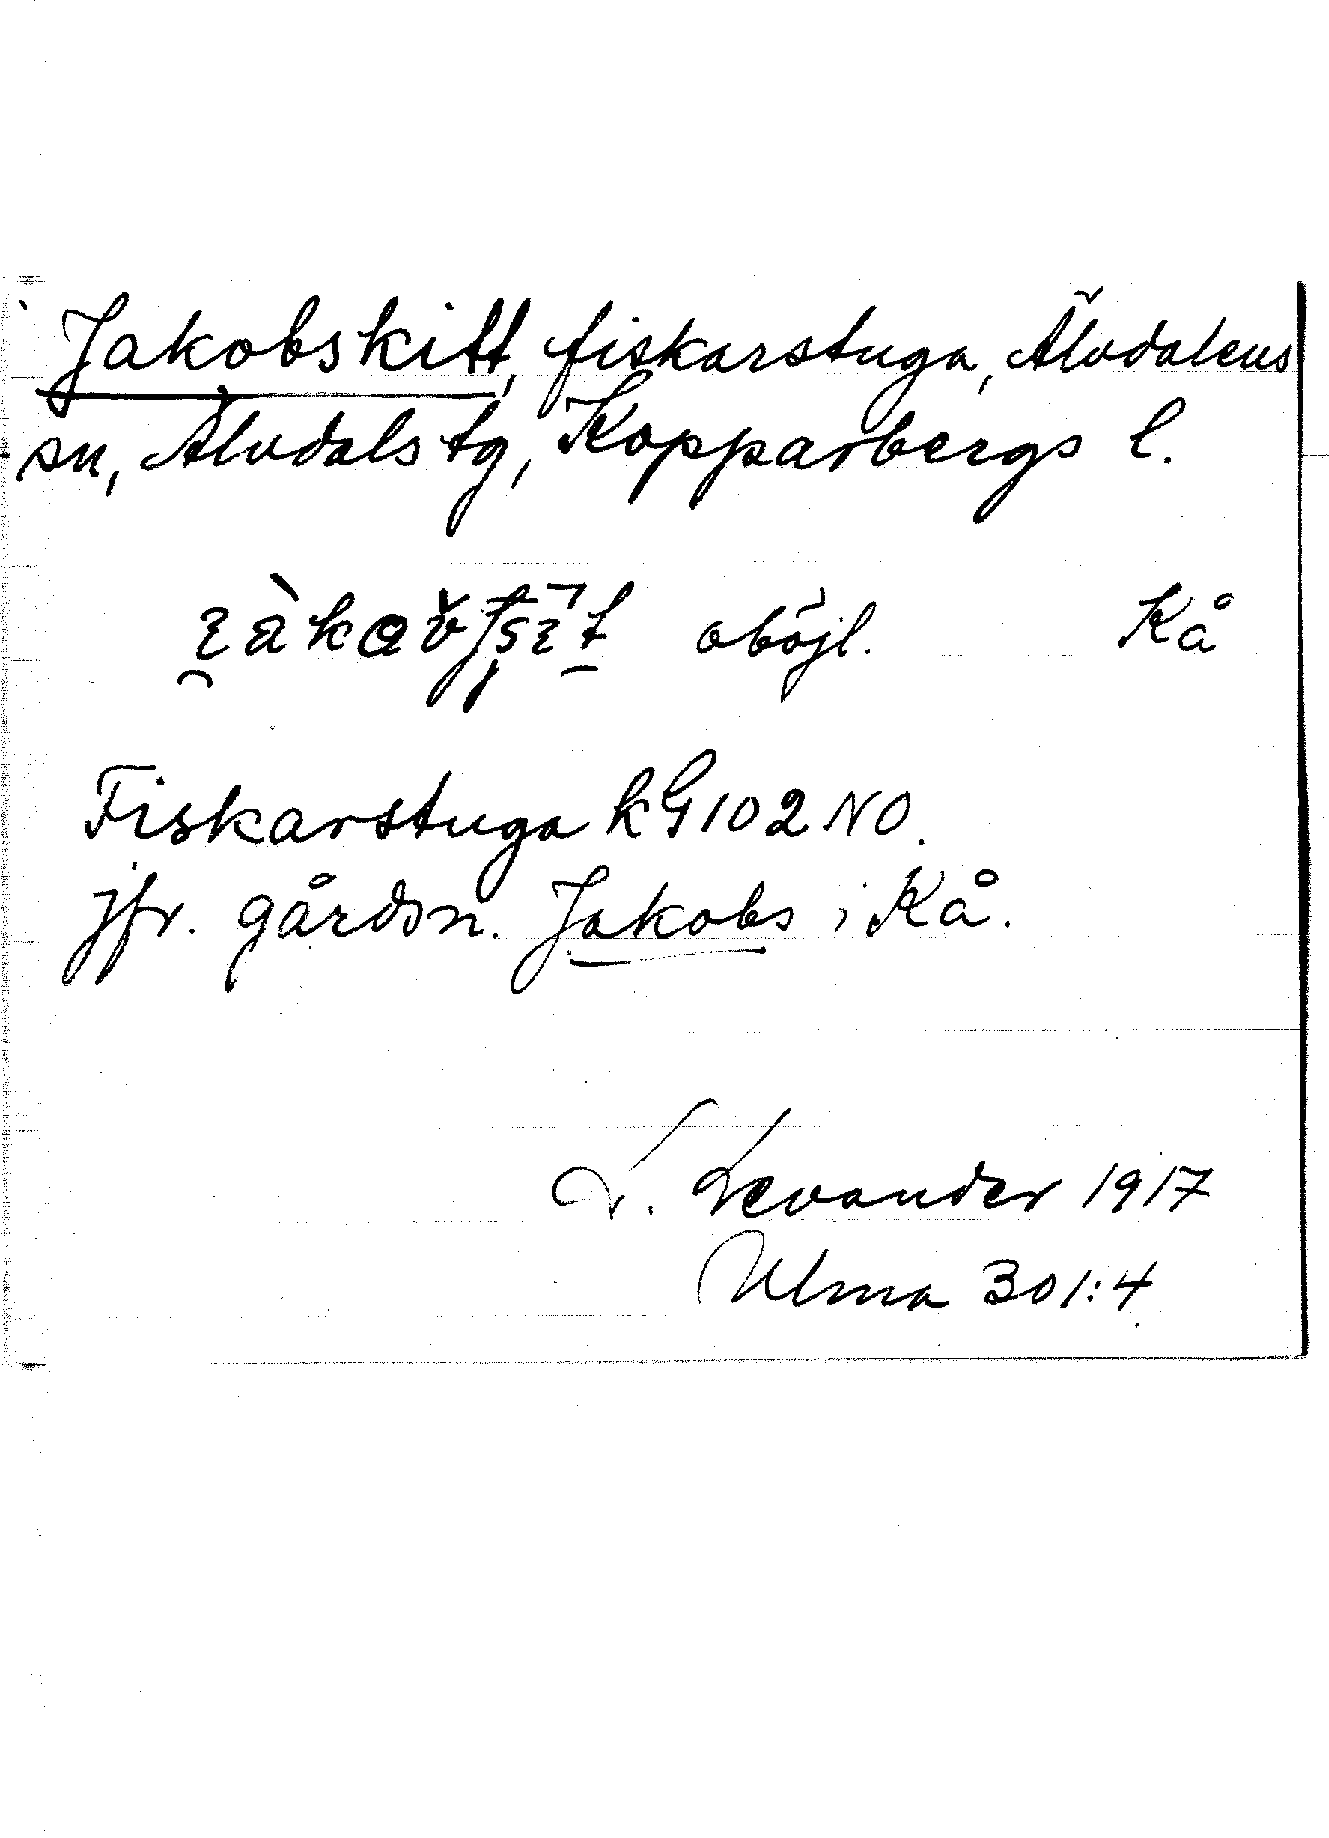 Jakobskitt, fiskarstuga, Älvdalens
sn, Älvdals tg, Kopparbergs l.
oböjl. Kå
Fiskarstuga kG 102 NO.
jfr. gårdsn. Jakobs i Kå.
L. Levander 1917
Ulma 301:4